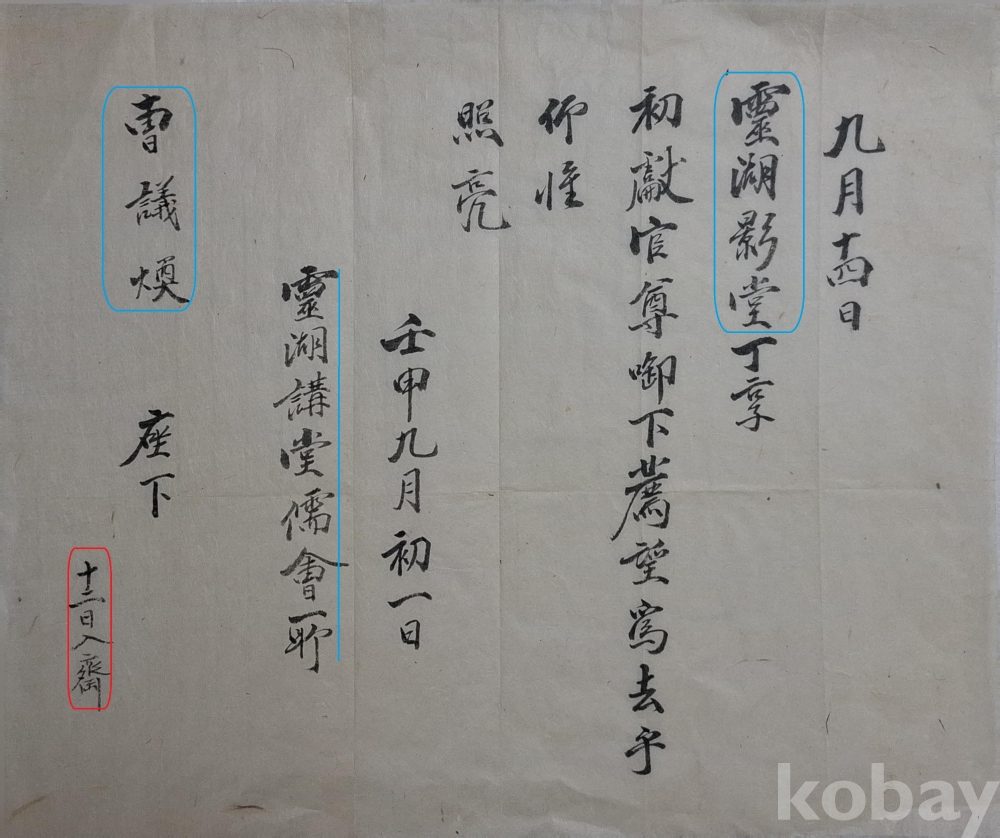 九月十四日
靈湖影堂丁享
初獻官尊啣下薦望爲去乎
仰惟
照亮
壬申九月初一日
靈湖講堂儒會所
曺議煥 座下
十二日入齋
kobay